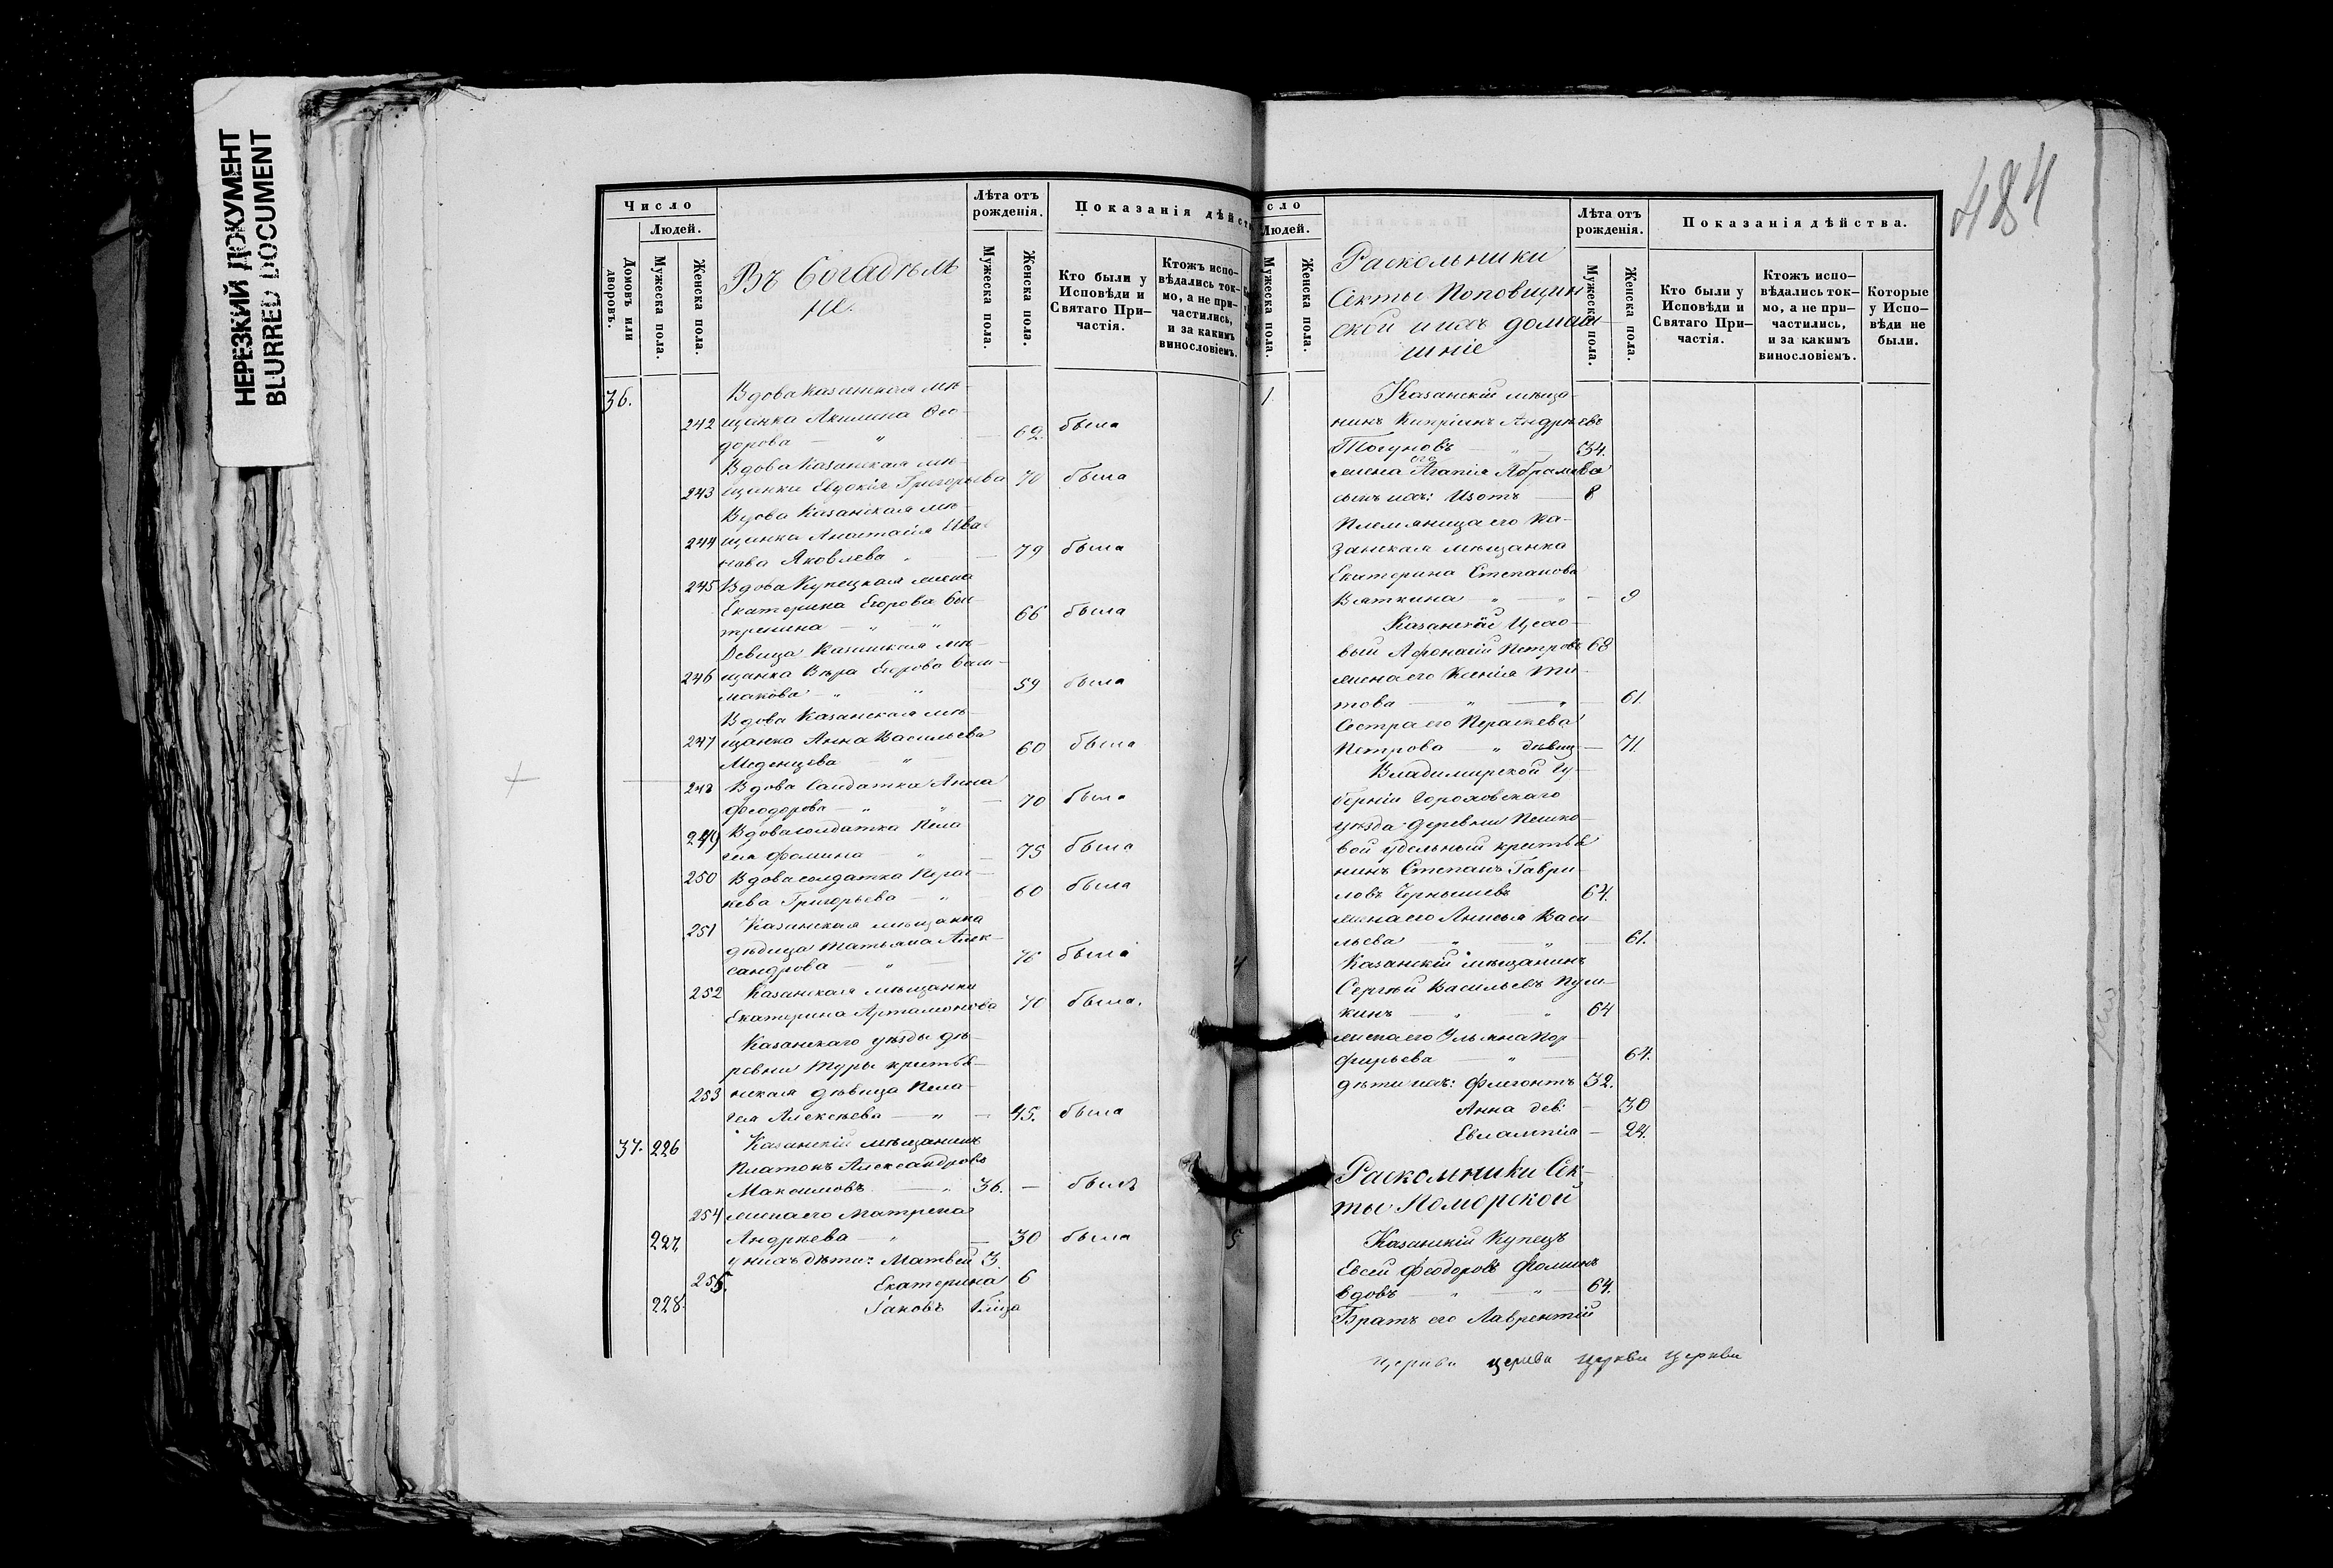 НЕРЕЗКИЙ ДОКУМЕНТ
BLURRED DOCUMENT
Число
Людей.
Домовъ или дворовъ.
Мужеска пола.
Женска пола.
Въ богадѣль
не.
Лѣта отъ рожденія.
Мужеска пола.
Женска пола.
Показанія дѣйст
Кто были у Исповѣди и Святаго При-частія.
Ктожъ испо-вѣдались ток-мо, а не при-частились, и за какимъ винословіемъ.
36. Вдова Казанская мѣ-
242 щанка Акилина Ѳео-
дорова — " — 62. была
Вдова Казанская мѣ-
243 щанка Евдокія Григорьева 70 была
Вдова Казанская мѣ-
244 щанка Анастасія Ива
нова Яковлева " — 79 была
245 Вдова Купецкая жена
Екатерина Егорова
66 была
Девица Казанская мѣ-
246 щанка Вѣра Егорова Баш-
макова — " " — 59 была
Вдова Казанская мѣ-
247 щанка Анна Васильева
Меденцева — " — 60 была
248 Вдова Салдатка Анна
Феодорова — " " — 70 была
249 Вдова солдатка Пела
гея Фомина — " — 75 была
250 Вдова солдатка Парас-
кева Григорьева — " — 60 была
251 Казанская мѣщанка
дѣвица Татьяна Алек-
сандрова — " — 76 была
252 Казанская мѣщанка
Екатерина Артамонова 70 была.
Казанскаго уѣзда де-
ревни Туры крестья-
253 нская дѣвица Пела-
гея Алексѣева — " — 45. была
37. 226 Казанскій мѣщанинъ
Платонъ Александровъ
Максимовъ — " 36. — былъ
254 жена его Матрена
Андрѣева — " — 30 была
227 у нихъ дѣти: Матвей 3.
255. Екатерина 6
228. Іаковъ 1 лица
484
сло
Людей.
Мужеска пола.
Женска пола.
Раскольники
Секты Поповщин
ской и ихъ домаш-
шніе
Лѣта отъ рожденія.
Мужеска пола.
Женска пола.
Показанія дѣйства.
Кто были у Исповѣди и Святаго При-частія.
Ктожъ испо-вѣдались ток-мо, а не при-частились, и за какимъ винословіемъ.
Которые у Испо-вѣди не были.
1. Казанскій мѣща-
нинъ Кипріинъ Андрѣевъ
34.
жена его Агапія Абрамова
сынъ ихъ: Изотъ — 8
Племяница его Ка-
занская мѣщанка
Екатерина Степанова
Вяткина " — " — 9
Казанскій Цехо-
вый Афонасій Петровъ 68
жена его Ксенія Ти-
това — " — " — 61.
Сестра его Параскева
Петрова — " дѣвиц — 71.
Владимирской Гу-
берніи Гороховскаго
уѣзда деревни Пешко-
вой удельный крестья
нинъ Степанъ Гаври-
ловъ Чернышевъ 64.
жена его Анисья Васи-
льева — " — " — 61.
4 Казанскій мѣщанинъ
Сергѣй Васильевъ Пуш-
кинъ — " — " 64
жена его Ульяна Пор-
фирьева — " — 64.
дѣти ихъ: Флегонтъ 32.
Анна дев: — 30
Евлампія — 24.
Раскольники Сек-
ты Поморской
5 Казанскій Купецъ
Евсей Феодоровъ Фоминъ
вдовъ — " — " — 64.
Братъ его Лаврентій
церкви церкви церкви церкви